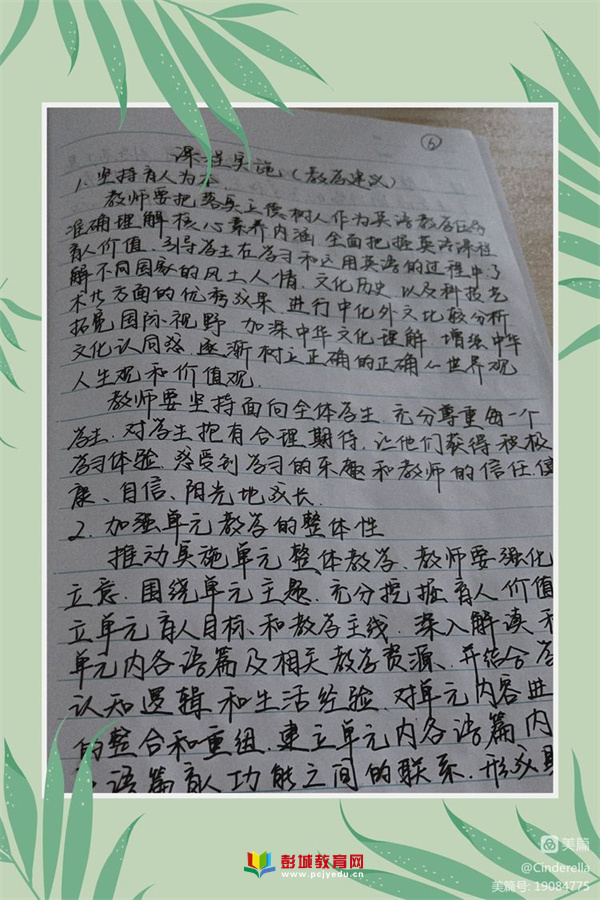 6
课程实施(教学建议)
1. 坚持育人为本
教师要把落实立德树人作为英语教学任务
准确理解核心素养内涵,全面把握英语课程
育人价值.引导学生在学习和运用英语的过程中了
解不同国家的风土人情.文化历史.以及科技艺
术等方面的优秀成果.进行中外文化比较分析
拓宽国际视野.加深中华文化理解.增强中华
文化认同感.逐渐树立正确的正确的世界观
人生观和价值观.
教师要坚持面向全体学生.充分尊重每一个
学生.对学生抱有合理期待.让他们获得积极
学习体验.感受到学习的乐趣和教师的信任健
康、自信、阳光地成长.
2. 加强单元教学的整体性
推动实施单元整体教学.教师要强化
立意.围绕单元主题.充分挖掘育人价值
立单元育人目标、和教学主线.深入解读和
单元内各语篇及相关教学资源、并结合学
认知逻辑和生活经验.对单元内容进
的整合和重组.建立单元内各语篇内
语篇育人功能之间的联系.形成
彭城教育网
www.pcjyedu.cn
美篇
@Cinderella
美篇号: 19084775